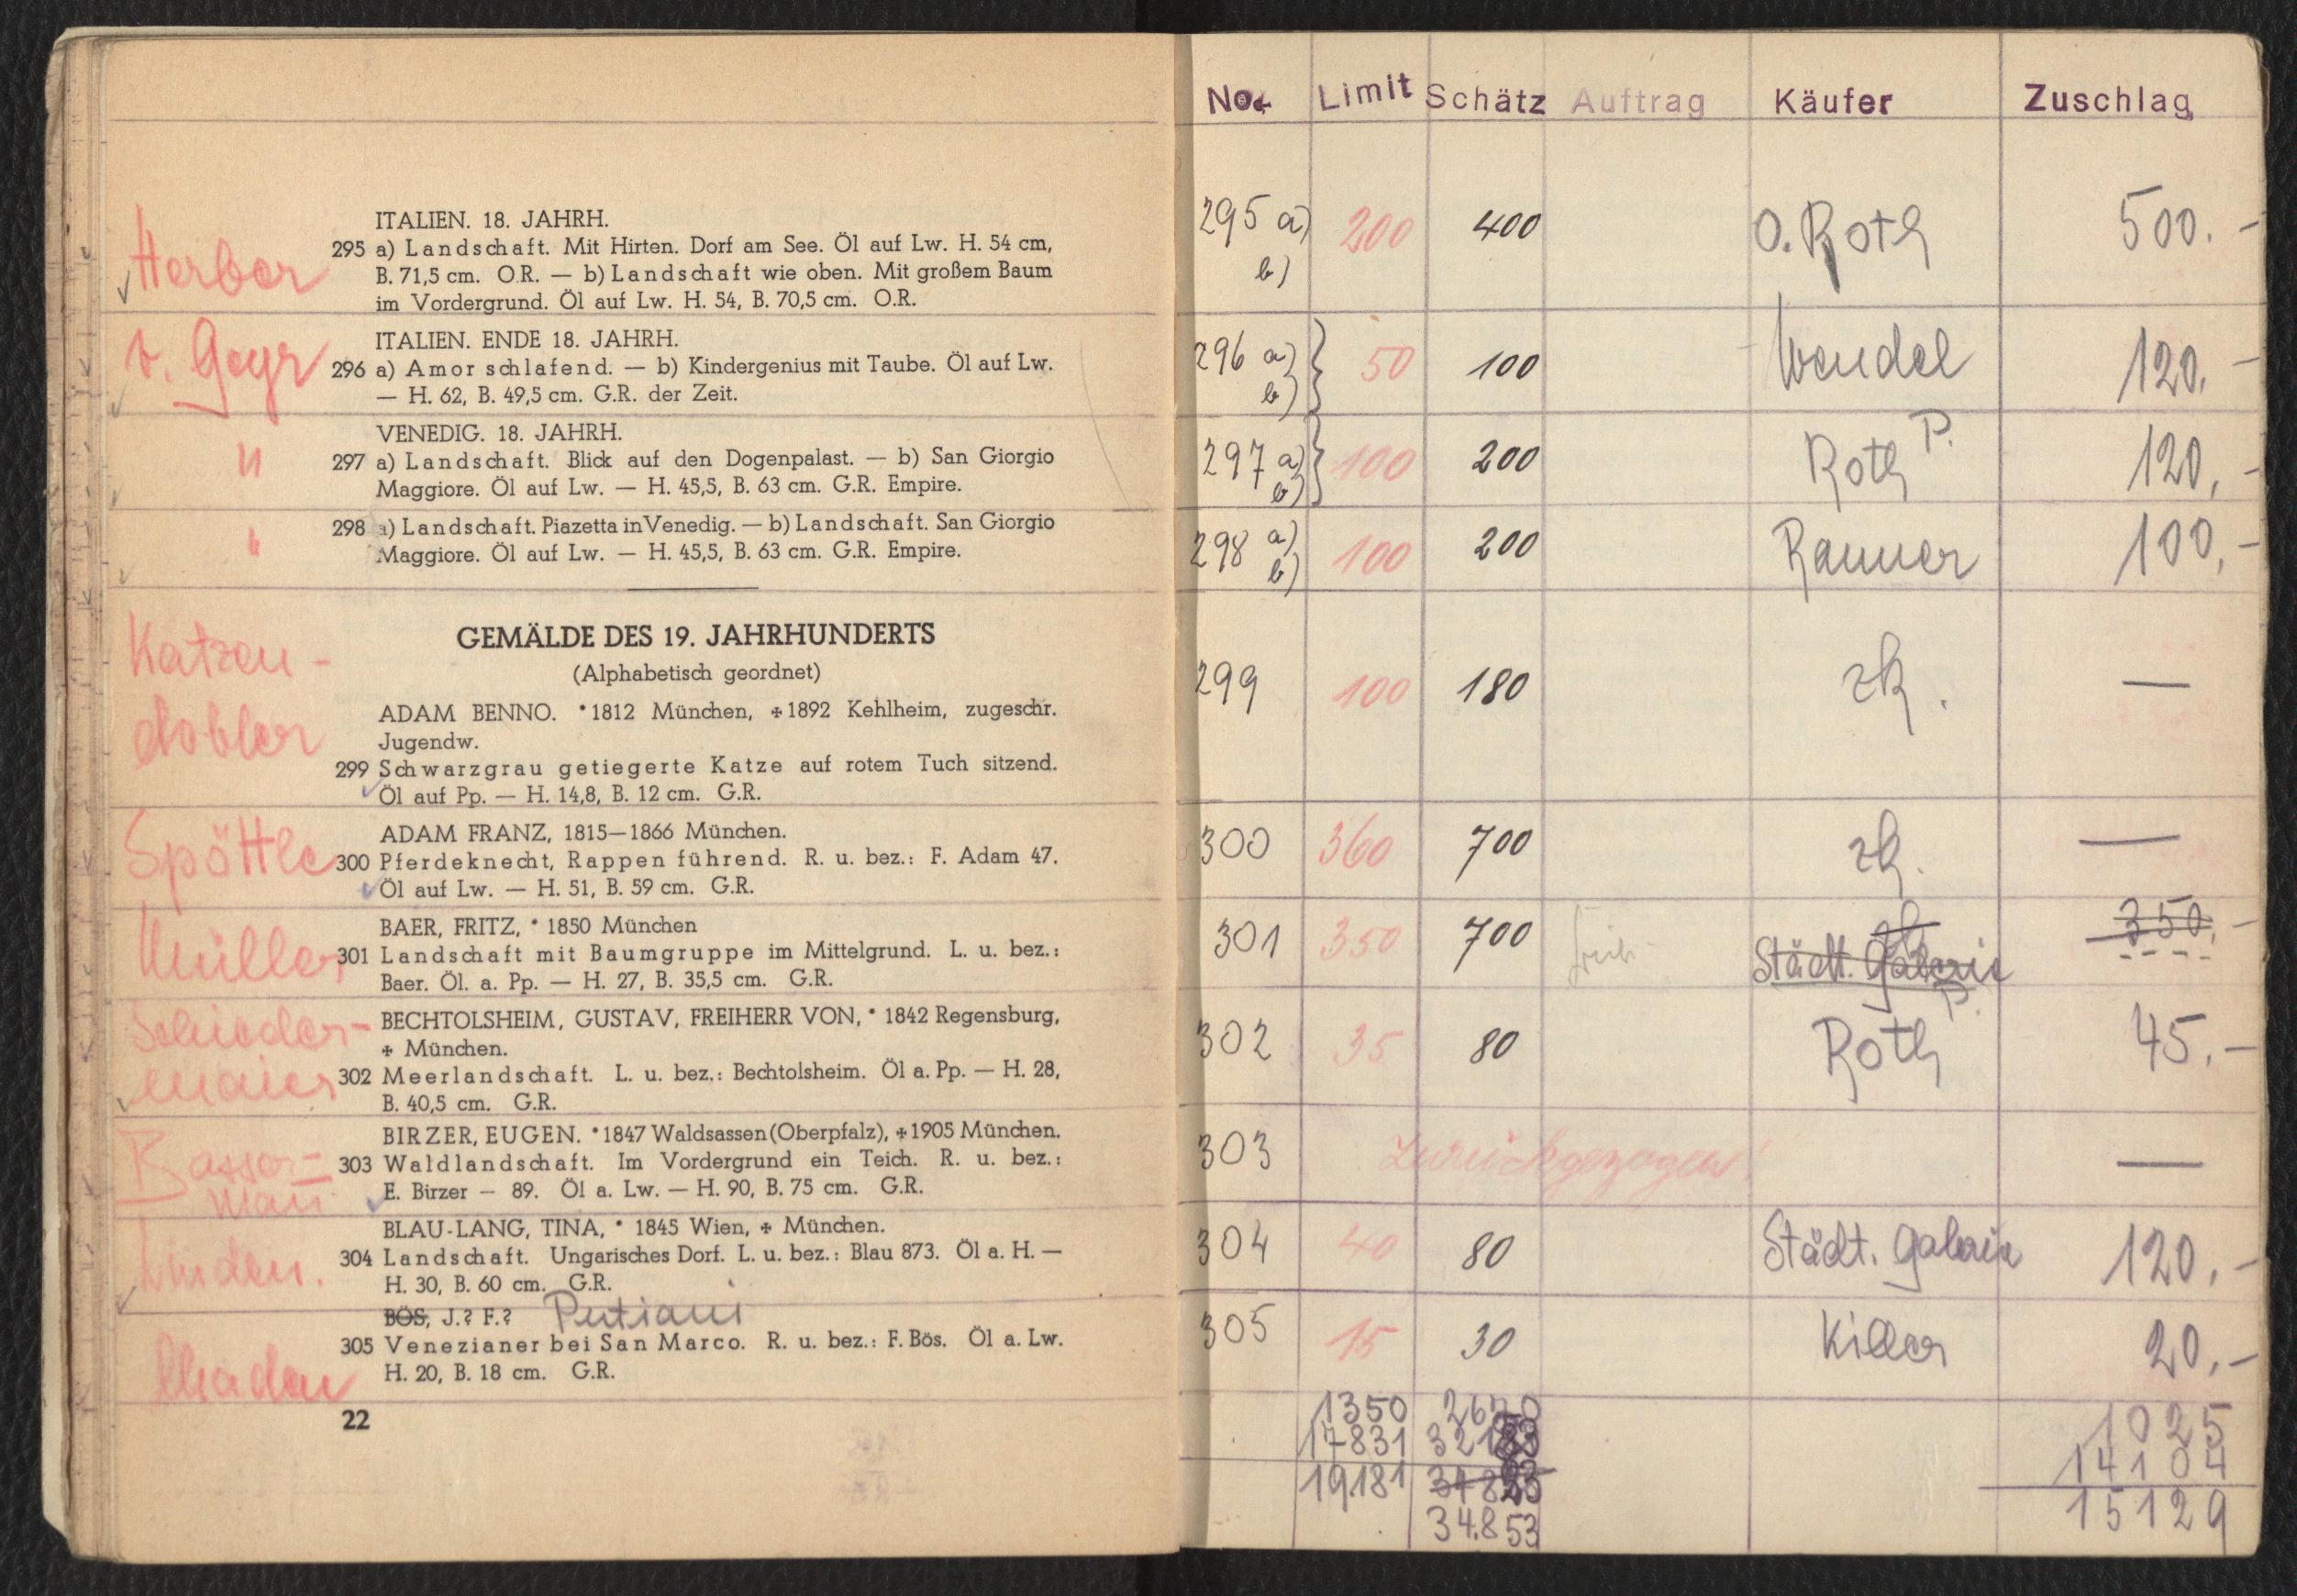 Herber
ITALIEN. 18. JAHRH.
295 a) Landschaft. Mit Hirten. Dorf am See. Öl auf Lw. H. 54 cm,
B. 71,5 cm. O.R. — b) Landschaft wie oben. Mit großem Baum
im Vordergrund. Öl auf Lw. H. 54, B. 70,5 cm. O.R.
v. Geyr
ITALIEN. ENDE 18. JAHRH.
296 a) Amor schlafend. — b) Kindergenius mit Taube. Öl auf Lw.
— H. 62, B. 49,5 cm. G.R. der Zeit.
"
VENEDIG. 18. JAHRH.
297 a) Landschaft. Blick auf den Dogenpalast. — b) San Giorgio
Maggiore. Öl auf Lw. — H. 45,5, B. 63 cm. G.R. Empire.
"
298 a) Landschaft. Piazetta in Venedig. — b) Landschaft. San Giorgio
Maggiore. Öl auf Lw. — H. 45,5, B. 63 cm. G.R. Empire.
GEMÄLDE DES 19. JAHRHUNDERTS
(Alphabetisch geordnet)
Katzen-
dobler
ADAM BENNO. *1812 München, ✢1892 Kehlheim, zugeschr.
Jugendw.
299 Schwarzgrau getiegerte Katze auf rotem Tuch sitzend.
Öl auf Pp. — H. 14,8, B. 12 cm. G.R.
Spöttle
ADAM FRANZ, 1815—1866 München.
300 Pferdeknecht, Rappen führend. R. u. bez.: F. Adam 47.
Öl auf Lw. — H. 51, B. 59 cm. G.R.
Müller
BAER, FRITZ, * 1850 München
301 Landschaft mit Baumgruppe im Mittelgrund. L. u. bez.:
Baer. Öl. a. Pp. — H. 27, B. 35,5 cm. G.R.
Schieder-
maier
BECHTOLSHEIM, GUSTAV, FREIHERR VON, * 1842 Regensburg,
✢ München.
302 Meerlandschaft. L. u. bez.: Bechtolsheim. Öl a. Pp. — H. 28,
B. 40,5 cm. G.R.
Basser-
man̄
BIRZER, EUGEN. *1847 Waldsassen (Oberpfalz), ✢1905 München.
303 Waldlandschaft. Im Vordergrund ein Teich. R. u. bez.:
E. Birzer — 89. Öl a. Lw. — H. 90, B. 75 cm. G.R.
Linden.
BLAU-LANG, TINA, * 1845 Wien, ✢ München.
304 Landschaft. Ungarisches Dorf. L. u. bez.: Blau 873. Öl a. H. —
H. 30, B. 60 cm. G.R.
BÖS, J.? F.? Putiani
305 Venezianer bei San Marco. R. u. bez.: F. Bös. Öl a. Lw.
H. 20, B. 18 cm. G.R.
22
No. Limit Schätz Auftrag Käufer Zuschlag
295 a) 200 400 O. Roth 500.-
b)
296 a) 50 100 Wendel 120.-
b)
297 a) 100 200 Roth P. 120,-
b)
298 a) 100 200 Ranner 100,-
b)
299 100 180 zk. —
300 360 700 zk. —
301 350 700 zk Städt. Galerie 350.-
302 35 80 Roth P. 45.-
303 zurückgezogen! —
304 40 80 Städt. Galerie 120.-
305 15 30 Killer 20.-
1350 1025
17831 14104
19181 15129
34.853